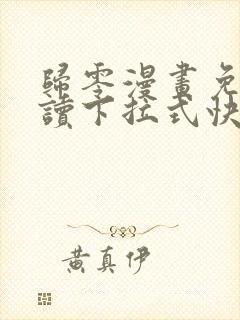 歸零漫畫免
讀下拉式快
黃真伊